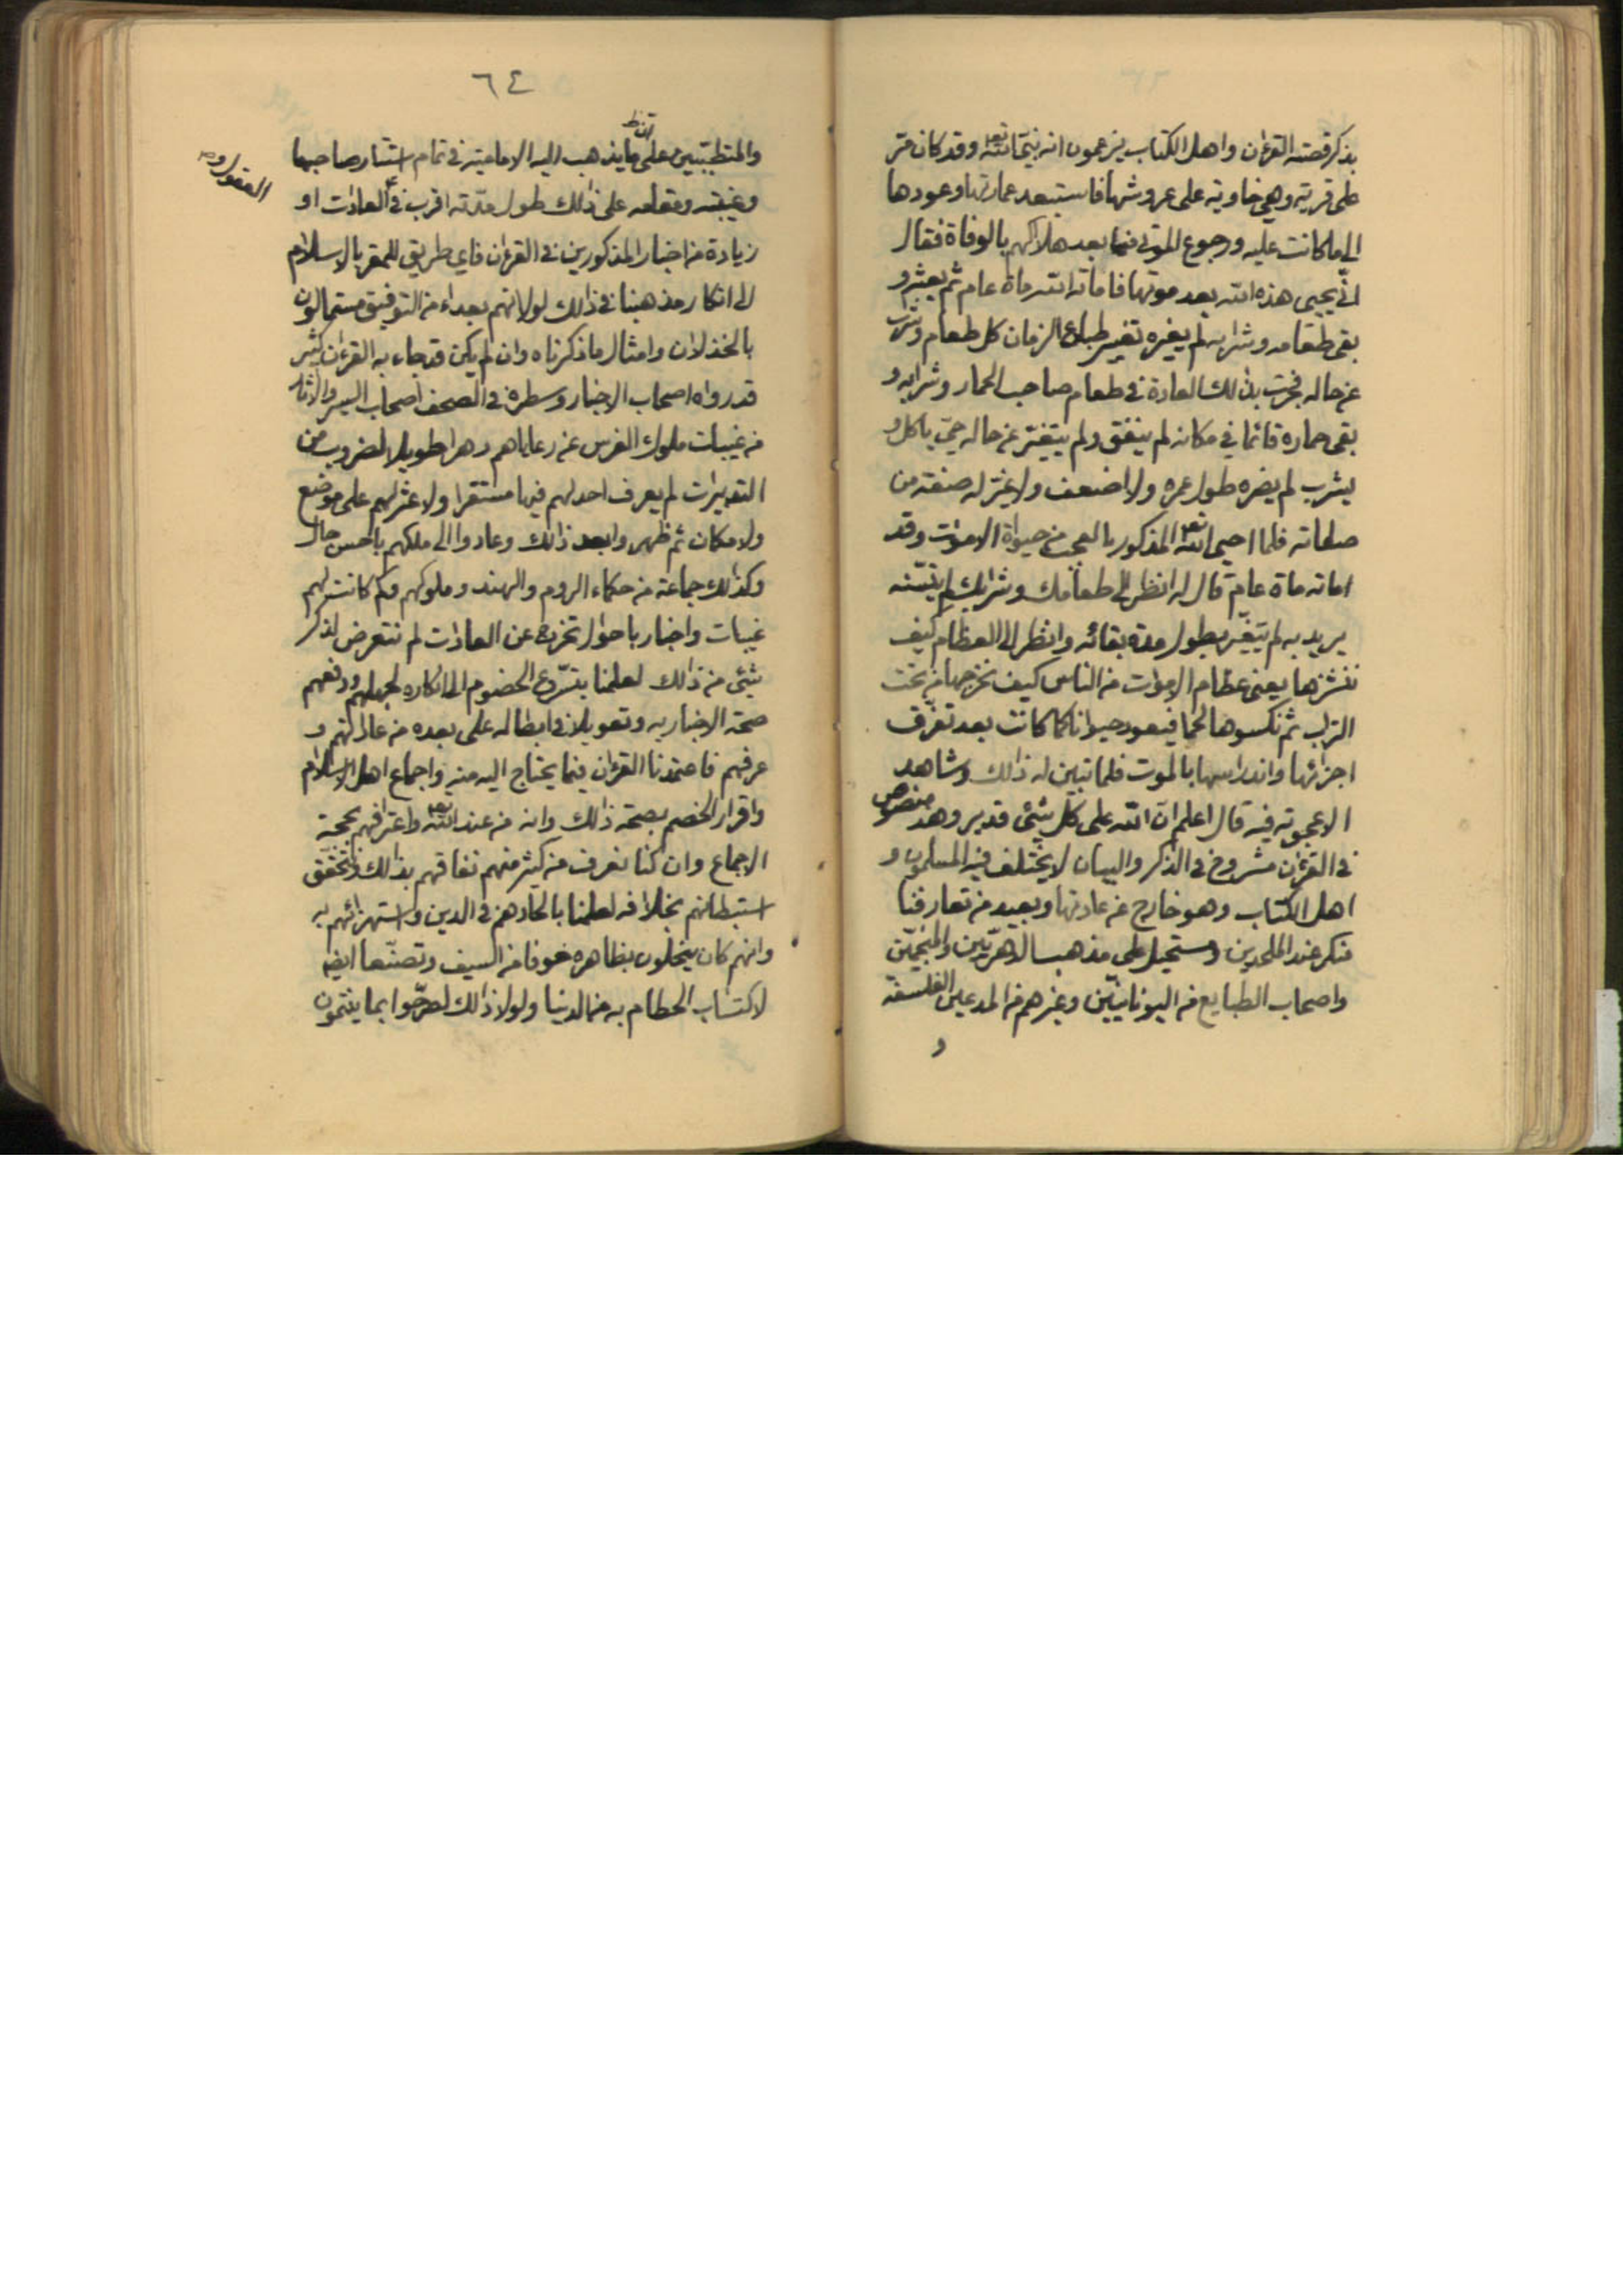 بذكر قصته القرءان واهل الكتاب يزعمون انه نبي الله تعه وقد كان مرّ
على قرية وهي خاوية على عروشها فاستبعد عمارتها وعودها
الى ما كانت عليه ورجوع الموتى فيها بعد هلاكهم بالوفاة فقال
انّى يحيى هذه الله بعد موتها فاماته الله ماة عام ثم بعثه و
بقى طعامه وشرابه لم يغيره تغيير طباع الزمان كل طعام وشراب
عن حاله فجرت بذلك العادة في طعام صاحب الحمار وشرابه و
بقى حماره قائما في مكانه لم ينفق ولم يتغير عن حاله حيّ ياكل و
يشرب لم يضره طول عمره ولا اضعف ولا غير له صفة من
صفاته فلما احيى الله تعه المذكور بالعجب من حيوة الاموات وقد
اماته ماة عام قال له انظر الى طعامك وشرابك لم يتسنّه
يريد به لم يتغيّر بطول مدة بقائه وانظر الى العظام كيف
ننشزها يعنى عظام الاموات من الناس كيف نخرجها من تحت
التراب ثم نكسوها لحما فيعود حيوانا كما كانت بعد تفرّق
اجزائها واندراسها بالموت فلما تبين له ذالك وشاهد
الاعجوبة فيه قال اعلم انّ الله على كل شئى قدير وهذ منصوص
في القرءان مشروح في الذكر والبيان لا يختلف فيه المسلمون و
اهل الكتاب وهو خارج عن عادتها وبعيد من تعارفنا
منكر عند الملحدين ومستحيل على مذهب الدهريّين والمنجّمين
واصحاب الطبايع من اليونانيّين وغيرهم من المدعين الفلسفة
و
٦٤
والمتطبّبين على ان ما يذهب اليه الامامية في تمام استتار صاحبها
وغيبته ومقامه على ذالك طول مدّته اقرب في العادات او
العقول و
زيادة من اخبار المذكورين في القرءان فاي طريق للمقر بالاسلام
الى انكار مذهبنا في ذالك لولا انهم بعداء من التوفيق مستمالون
بالخذلان وامثال ما ذكرناه وان لم يكن قد جاء به القرءان كثير
قد رواه اصحاب الاخبار وسطره في الصحف اصحاب السير والاثار
من غيبات ملوك الفرس عن رعاياهم دهرا طويلا لضروب من
التدبيرات لم يعرف احد لهم فيها مستقرا ولا عثر لهم على موضع
ولا مكان ثم ظهروا بعد ذالك وعادوا الى ملكهم باحسن حال
وكذالك جماعة من حكماء الروم والهند وملوكهم وكم كانت لهم
غيبات واخبار باحوال تخرج عن العادات لم نتعرض لذكر
شئى من ذالك لعلمنا بتسرّع الخصوم الى انكاره لجهلهم ودفعهم
صحة الاخبار به وتعويلا في ابطاله على بعده من عاداتهم و
عرفهم فاعتمدنا القرءان فيما يحتاج اليه منه واجماع اهل الاسلام
واقرار الخصم بصحة ذالك وانه من عند الله تعه واعترافهم بحجة
الاجماع وان كنا نعرف من كثير منهم نفاقهم بذالك ونتحقق
استبطانهم بخلافه لعلمنا بالحادهم في الدين واستهزائهم به
وانهم كان ينحلون بظاهره خوفا من السيف وتصنّعا ايضا
لاكتساب الحطام به من الدنيا ولولا ذالك لصرّحوا بما ينتمون